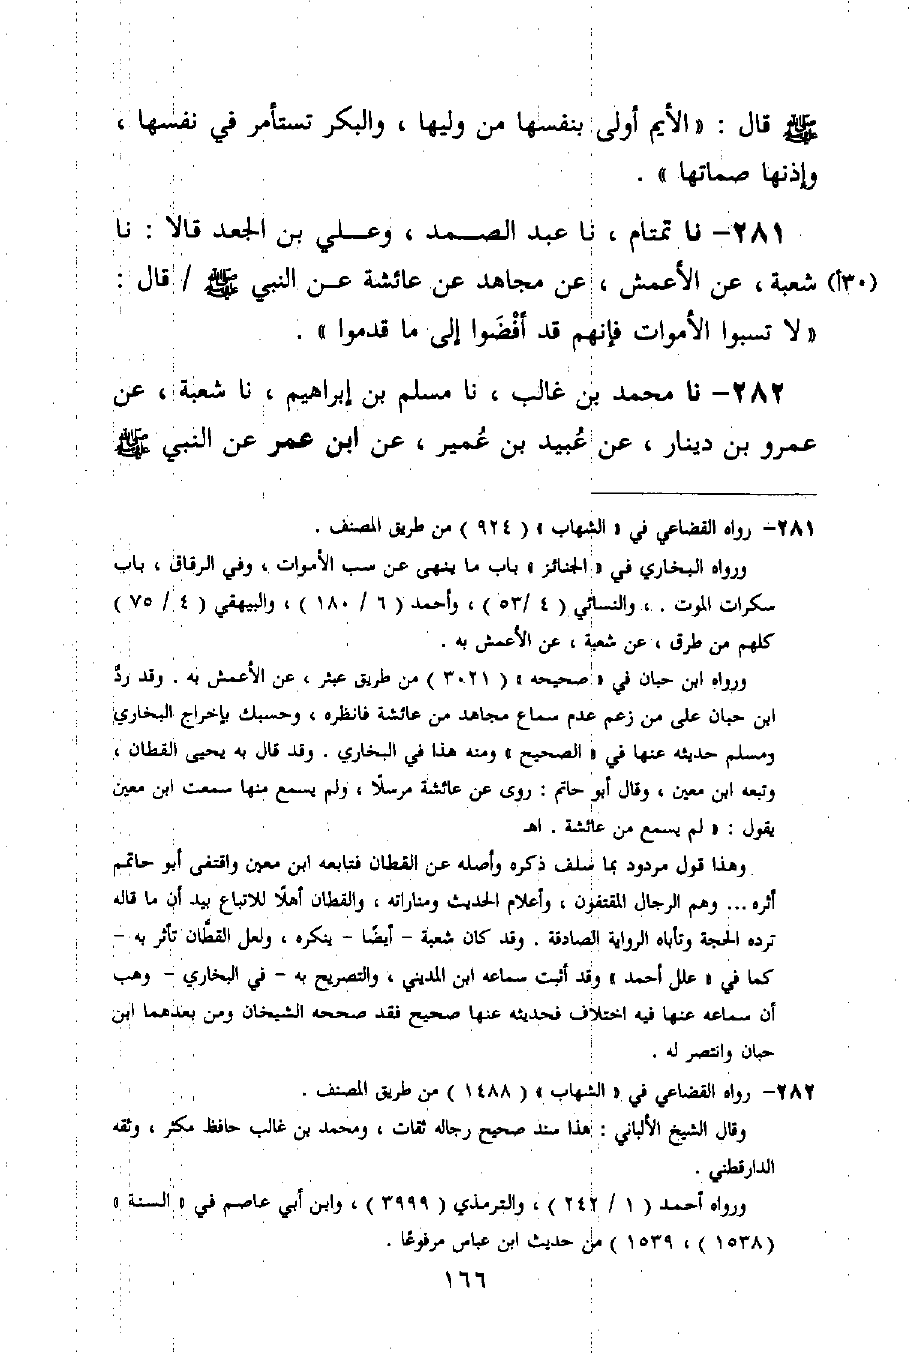 ﷺ قال : « الأيم أولى بنفسها من وليها ، والبكر تستأمر في نفسها ،
وإذنها صماتها » .
٢٨١- نا تمتام ، نا عبد الصـمد ، وعـلي بن الجعد قالا : نا
(٣٠أ) شعبة ، عن الأعمش ، عن مجاهد عن عائشة عـن النبي ﷺ / قال :
« لا تسبوا الأموات فإنهم قد أفْضَوا إلى ما قدموا » .
٢٨٢- نا محمد بن غالب ، نا مسلم بن إبراهيم ، نا شعبة ، عن
عمرو بن دينار ، عن عُبيد بن عُمير ، عن ابن عمر عن النبي ﷺ
٢٨١- رواه القضاعي في « الشهاب » ( ٩٢٤ ) من طريق المصنف .
ورواه البخاري في « الجنائز » باب ما ينهى عن سب الأموات ، وفي الرقاق ، باب
سكرات الموت . ، والنسائي ( ٤ /٥٣ ) ، وأحمد ( ٦ / ١٨٠ ) ، والبيهقي ( ٤ / ٧٥ )
كلهم من طرق ، عن شعبة ، عن الأعمش به .
ورواه ابن حبان في « صحيحه » ( ٣٠٢١ ) من طريق عبثر ، عن الأعمش به . وقد ردَّ
ابن حبان على من زعم عدم سماع مجاهد من عائشة فانظره ، وحسبك بإخراج البخاري
ومسلم حديثه عنها في « الصحيح » ومنه هذا في البخاري . وقد قال به يحيى القطان ،
وتبعه ابن معين ، وقال أبو حاتم : روى عن عائشة مرسلًا ، ولم يسمع منها سمعت ابن معين
يقول : « لم يسمع من عائشة . اهـ
وهذا قول مردود بما سلف ذكره وأصله عن القطان فتابعه ابن معين واقتفى أبو حاتم
أثره ... وهم الرجال المقتفون ، وأعلام الحديث ومناراته ، والقطان أهلًا للاتباع بيد أن ما قاله
ترده الحجة وتأباه الرواية الصادقة . وقد كان شعبة - أيضًا - ينكره ، ولعل القطَّان تأثر به -
كما في « علل أحمد » وقد أثبت سماعه ابن المديني ، والتصريح به - في البخاري - وهب
أن سماعه عنها فيه اختلاف فحديثه عنها صحيح فقد صححه الشيخان ومن بعدهما ابن
حبان وانتصر له .
٢٨٢- رواه القضاعي في « الشهاب » ( ١٤٨٨ ) من طريق المصنف .
وقال الشيخ الألباني : هذا سند صحيح رجاله ثقات ، ومحمد بن غالب حافظ مكثر ، وثقه
الدارقطني .
ورواه أحمد ( ١ / ٢٤٢ ) ، والترمذي ( ٣٩٩٩ ) ، وابن أبي عاصم في « السنة »
( ١٥٣٨ ) ، ١٥٣٩ ) من حديث ابن عباس مرفوعًا .
١٦٦